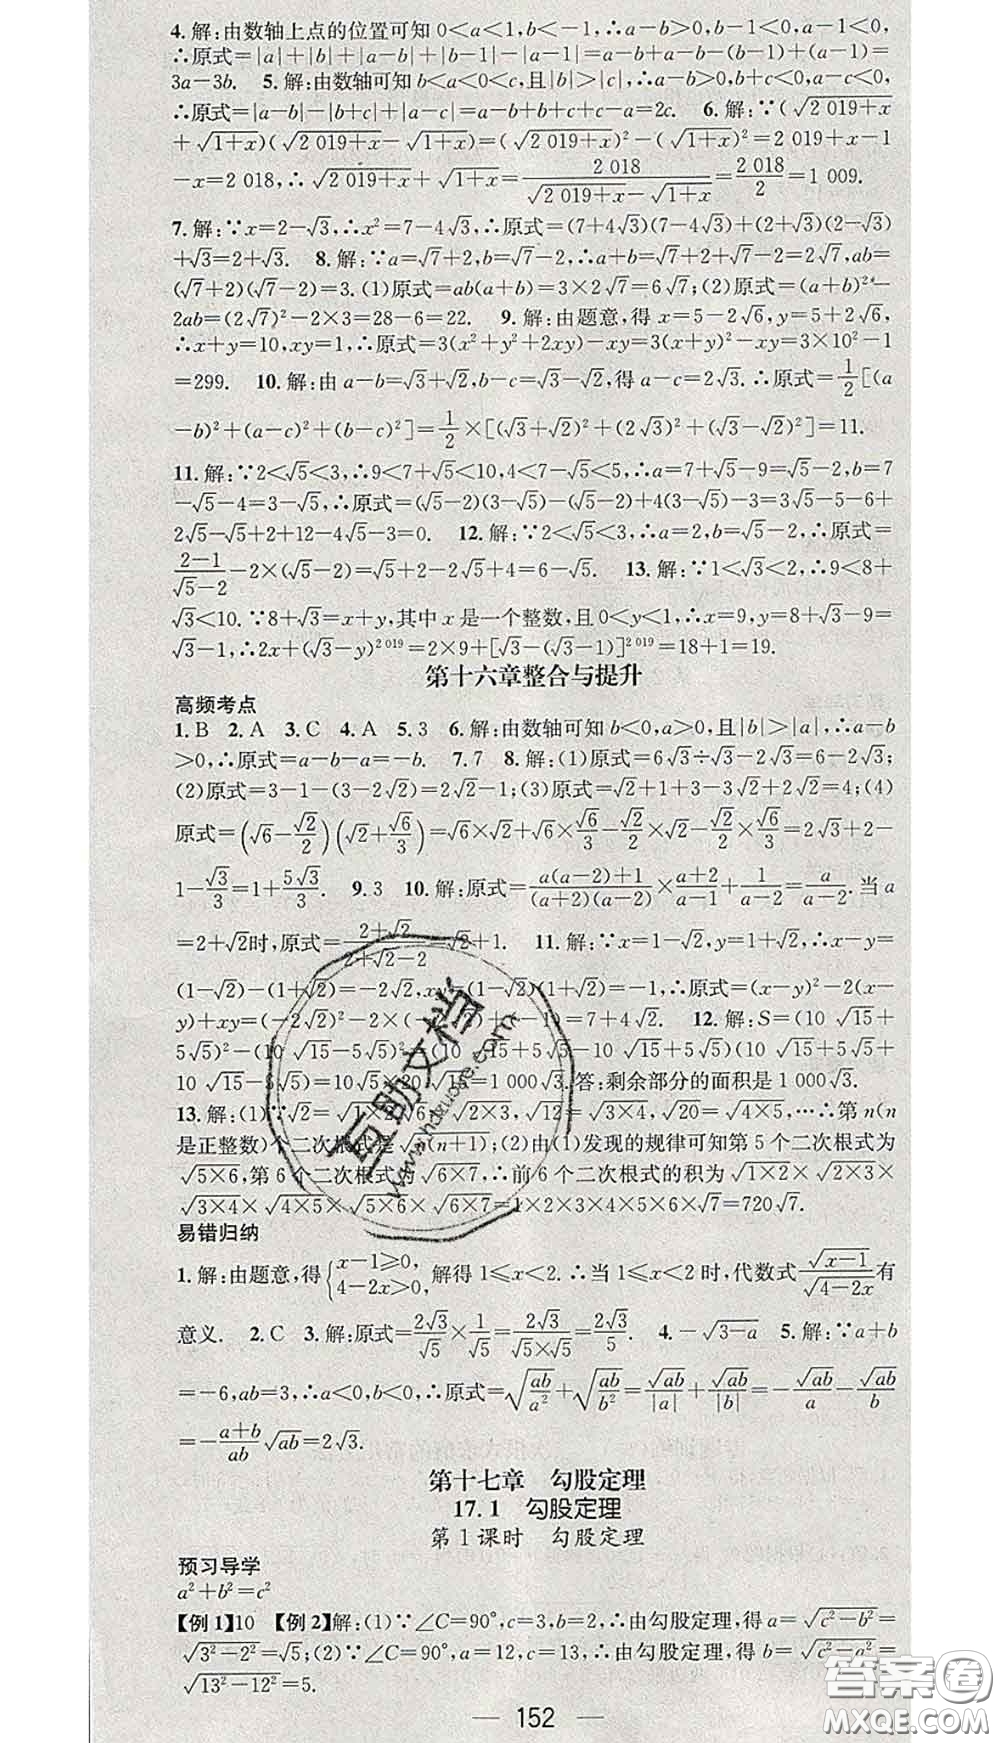 4. 解:由数轴上点的位置可知 0<a<1,b<-1,b-1<0,a-1<0,
∴原式=|a|+|b|+|a-b|-|b-1|-|a-1|=a-b+a-b-(b-1)+(a-1)=
3a-3b. 5. 解:由数轴可知 b<a<0<c,且|b|>|c|,∴a-b>0,b+c<0,a-c<0,
∴原式=|a-b|-|b+c|+|a-c|=a-b+b+c+c-a=2c. 6. 解:∵(√(2 019+x)
+√(1+x))(√(2 019+x)-√(1+x))=(√(2 019+x))²-(√(1+x))²=2 019+x-1
-x=2 018,∴√(2 019+x)+√(1+x)=2 018/(√(2 019+x)-√(1+x))=2 018/2=1 009.
7. 解:∵x=2-√3,∴x²=7-4√3,∴原式=(7+4√3)(7-4√3)+(2+√3)(2-√3)
+√3=2+√3. 8. 解:∵a=√7+2,b=√7-2,∴a+b=√7+2+√7-2=2√7,ab=
(√7+2)(√7-2)=3. (1)原式=ab(a+b)=3×2√7=6√7;(2)原式=(a+b)²-
2ab=(2√7)²-2×3=28-6=22. 9. 解:由题意,得 x=5-2√6,y=5+2√6,
∴x+y=10,xy=1,∴原式=3(x²+y²+2xy)-xy=3(x+y)²-xy=3×10²-1
=299. 10. 解:由 a-b=√3+√2,b-c=√3-√2,得 a-c=2√3. ∴原式=1/2[(a
-b)²+(a-c)²+(b-c)²]=1/2×[(√3+√2)²+(2√3)²+(√3-√2)²]=11.
11. 解:∵2<√5<3,∴9<7+√5<10,4<7-√5<5,∴a=7+√5-9=√5-2,b=7
-√5-4=3-√5,∴原式=(√5-2)(3-√5)-(√5-2)+4(3-√5)-3=3√5-5-6+
2√5-√5+2+12-4√5-3=0. 12. 解:∵2<√5<3,∴a=2,b=√5-2,∴原式=
(2-1)/(√5-2)-2×(√5-2)=√5+2-2√5+4=6-√5. 13. 解:∵1<√3<2,∴9<8+
√3<10. ∵8+√3=x+y,其中 x 是一个整数,且 0<y<1,∴x=9,y=8+√3-9=
√3-1,∴2x+(√3-y)^2 019=2×9+[√3-(√3-1)]^2 019=18+1=19.
第十六章整合与提升
高频考点
1. B 2. A 3. C 4. A 5. 3 6. 解:由数轴可知 b<0,a>0,且|b|>|a|,∴a-b
>0,∴原式=a-b-a=-b. 7. 7 8. 解:(1)原式=6√3÷√3-2√3=6-2√3;
(2)原式=3-1-(3-2√2)=2√2-1;(3)原式=√2+1+3-3√2+2√2=4;(4)
原式=(√6-√2/2)(√2+√6/3)=√6×√2+√6×√6/3-√2/2×√2-√2/2×√6/3=2√3+2-
1-√3/3=1+5√3/3. 9. 3 10. 解:原式=(a(a-2)+1)/((a+2)(a-2))×(a+2)/(a-1)+1/(a-2)=a/(a-2). 当 a
=2+√2时,原式=(2+√2)/(2+√2-2)=√2+1. 11. 解:∵x=1-√2,y=1+√2,∴x-y=
(1-√2)-(1+√2)=-2√2,xy=(1-√2)(1+√2)=-1,∴原式=(x-y)²-2(x-
y)+xy=(-2√2)²-2×(-2√2)+(-1)=7+4√2. 12. 解:S=(10√15+
5√5)²-(10√15-5√5)²=(10√15+5√5+10√15-5√5)(10√15+5√5-
10√15+5√5)=20√15×10√5=1 000√3. 答:剩余部分的面积是 1 000√3.
13. 解:(1)∵√2=√(1×2),√6=√(2×3),√12=√(3×4),√20=√(4×5),…∴第 n(n
是正整数)个二次根式是√(n(n+1));(2)由(1)发现的规律可知第 5 个二次根式为
√(5×6),第 6 个二次根式为√(6×7),∴前 6 个二次根式的积为√(1×2)×√(2×3)×
√(3×4)×√(4×5)×√(5×6)×√(6×7)=1×2×3×4×5×6×√7=720√7.
易错归纳
1. 解:由题意,得{x-1≥0, 4-2x>0, 解得 1≤x<2. ∴当 1≤x<2 时,代数式√(x-1)/√(4-2x)有
意义. 2. C 3. 解:原式=2√3/√5×1/√5=2√3/(√5×√5)=2√3/5. 4. -√(3-a) 5. 解:∵a+b
=-6,ab=3,∴a<0,b<0,∴原式=√(ab/a²)+√(ab/b²)=√ab/|a|+√ab/|b|=-√ab/a-√ab/b
=-(a+b)/ab √ab=2√3.
第十七章 勾股定理
17.1 勾股定理
第 1 课时 勾股定理
预习导学
a²+b²=c²
【例 1】10 【例 2】解:(1)∵∠C=90°,c=3,b=2,∴由勾股定理,得 a=√(c²-b²)=
√(3²-2²)=√5;(2)∵∠C=90°,a=12,c=13,∴由勾股定理,得 b=√(c²-a²)=
√(13²-12²)=5.
— 152 —
互助文档
www.hdzuoye.com
答案圈
MXQE.COM